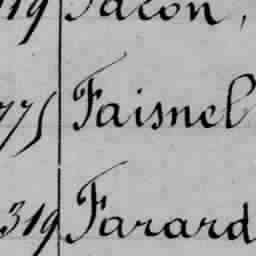 19 Facon,
775 Faisnel
319 Farard